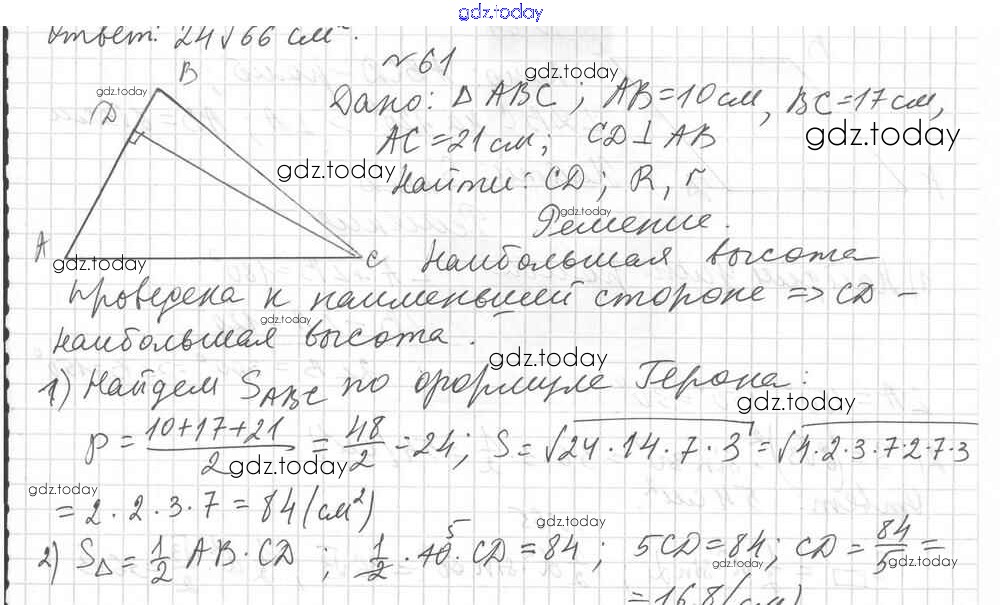 gdz.today
Ответ: 24√66 см².
№61
B
gdz.today
gdz.today
D
Дано: △ABC; AB=10см, BC=17см,
gdz.today
AC=21см; CD⊥AB
gdz.today
Найти: CD; R, r
gdz.today
Решение.
A
C
gdz.today
Наибольшая высота
проведена к наименьшей стороне => CD -
gdz.today
наибольшая высота.
gdz.today
1) Найдем S_ABC по формуле Герона:
gdz.today
p = (10+17+21)/2 = 48/2 = 24; S = √(24·14·7·3) = √(4·2·3·7·2·7·3)
gdz.today
gdz.today
= 2·2·3·7 = 84 (см²)
gdz.today
2) S_△ = 1/2 AB·CD; 1/2·10·CD = 84; 5CD = 84; CD = 84/5 =
5
gdz.today
gdz.today
= 16,8 (см)